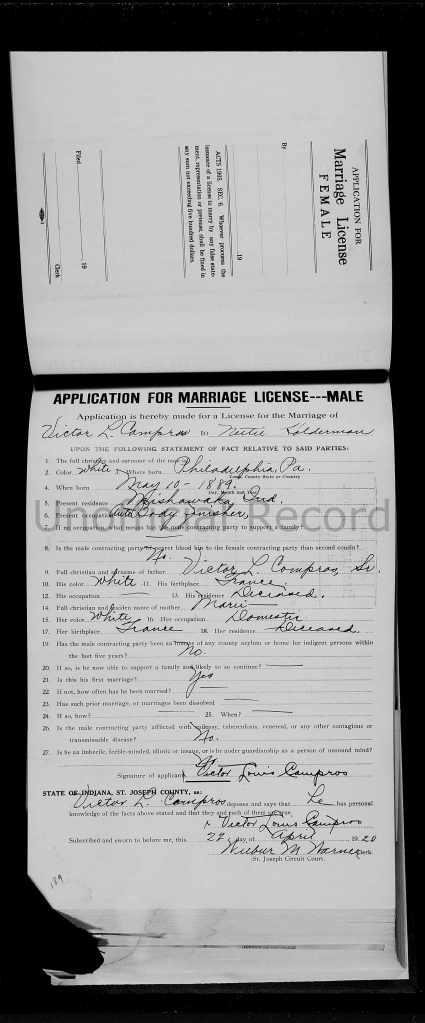 APPLICATION FOR
Marriage License
FEMALE
By
19
ACTS 1905. SEC. 6. Whoever procures the
issuance of a license to marry by any false state-
ment, representation or pretense, shall be fined in
any sum not exceeding five hundred dollars.
Filed 19
Clerk
APPLICATION FOR MARRIAGE LICENSE---MALE
Application is hereby made for a License for the Marriage of
Victor L. Campros to Nettie Holderman
UPON THE FOLLOWING STATEMENT OF FACT RELATIVE TO SAID PARTIES:
1. The full christian and surname of the man
2. Color White Where born Philadelphia, Pa.
Town, County, State or Country
4. When born May 10 - 1889.
Day, Month and Year
5. Present residence Mishawaka, Ind.
6. Present occupation Auto Body Finisher,
7. If no occupation, what means has the male contracting party to support a family?
8. Is the male contracting party of nearer blood kin to the female contracting party than second cousin?
No.
9. Full christian and surname of father Victor L. Campros, Sr.
10. His color White 11. His birthplace France
12. His occupation 13. His residence Deceased.
14. Full christian and maiden name of mother Marie
15. Her color White 16. Her occupation Domestic
17. Her birthplace France 18. Her residence Deceased.
19. Has the male contracting party been an inmate of any county asylum or home for indigent persons within
the last five years? No.
20. If so, is he now able to support a family and likely to so continue?
21. Is this his first marriage? Yes
22. If not, how often has he been married?
23. Has such prior marriage, or marriages been dissolved
24. If so, how? 25. When?
26. Is the male contracting party afflicted with epilepsy, tuberculosis, venereal, or any other contagious or
transmissible disease? No.
27. Is he an imbecile, feeble-minded, idiotic or insane, or is he under guardianship as a person of unsound mind?
No
Signature of applicant Victor Louis Campros
STATE OF INDIANA, ST. JOSEPH COUNTY, ss:
Victor L. Campros deposes and says that he has personal
knowledge of the facts above stated and that they and each of them are true.
x Victor Louis Campros
Subscribed and sworn to before me, this 22 day of April 1920
Wilbur M. Warner Clerk
(St. Joseph Circuit Court.
189